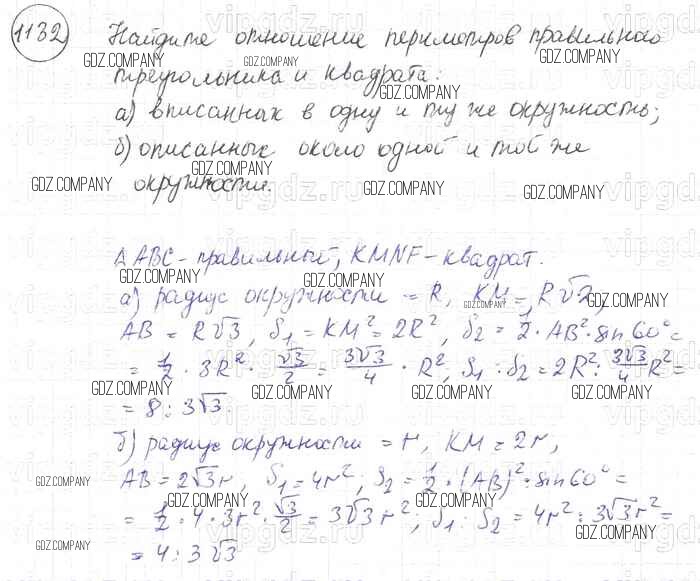 1132
Найдите отношение периметров правильного
треугольника и квадрата:
а) вписанных в одну и ту же окружность;
б) описанных около одной и той же
окружности.
Δ ABC - правильный, KMNF - квадрат.
а) радиус окружности = R, KM = R√2,
AB = R√3, S₁ = KM² = 2R², S₂ = 1/2 · AB² · sin 60° =
= 1/2 · 3R² · √3/2 = 3√3/4 · R², S₁ : S₂ = 2R² : 3√3/4 R² =
= 8 : 3√3.
б) радиус окружности = r, KM = 2r,
AB = 2√3r, S₁ = 4r², S₂ = 1/2 · (AB)² · sin 60° =
= 1/2 · 4 · 3r² · √3/2 = 3√3 r², S₁ : S₂ = 4r² : 3√3 r² =
= 4 : 3√3
GDZ.COMPANY
vipgdz.ru